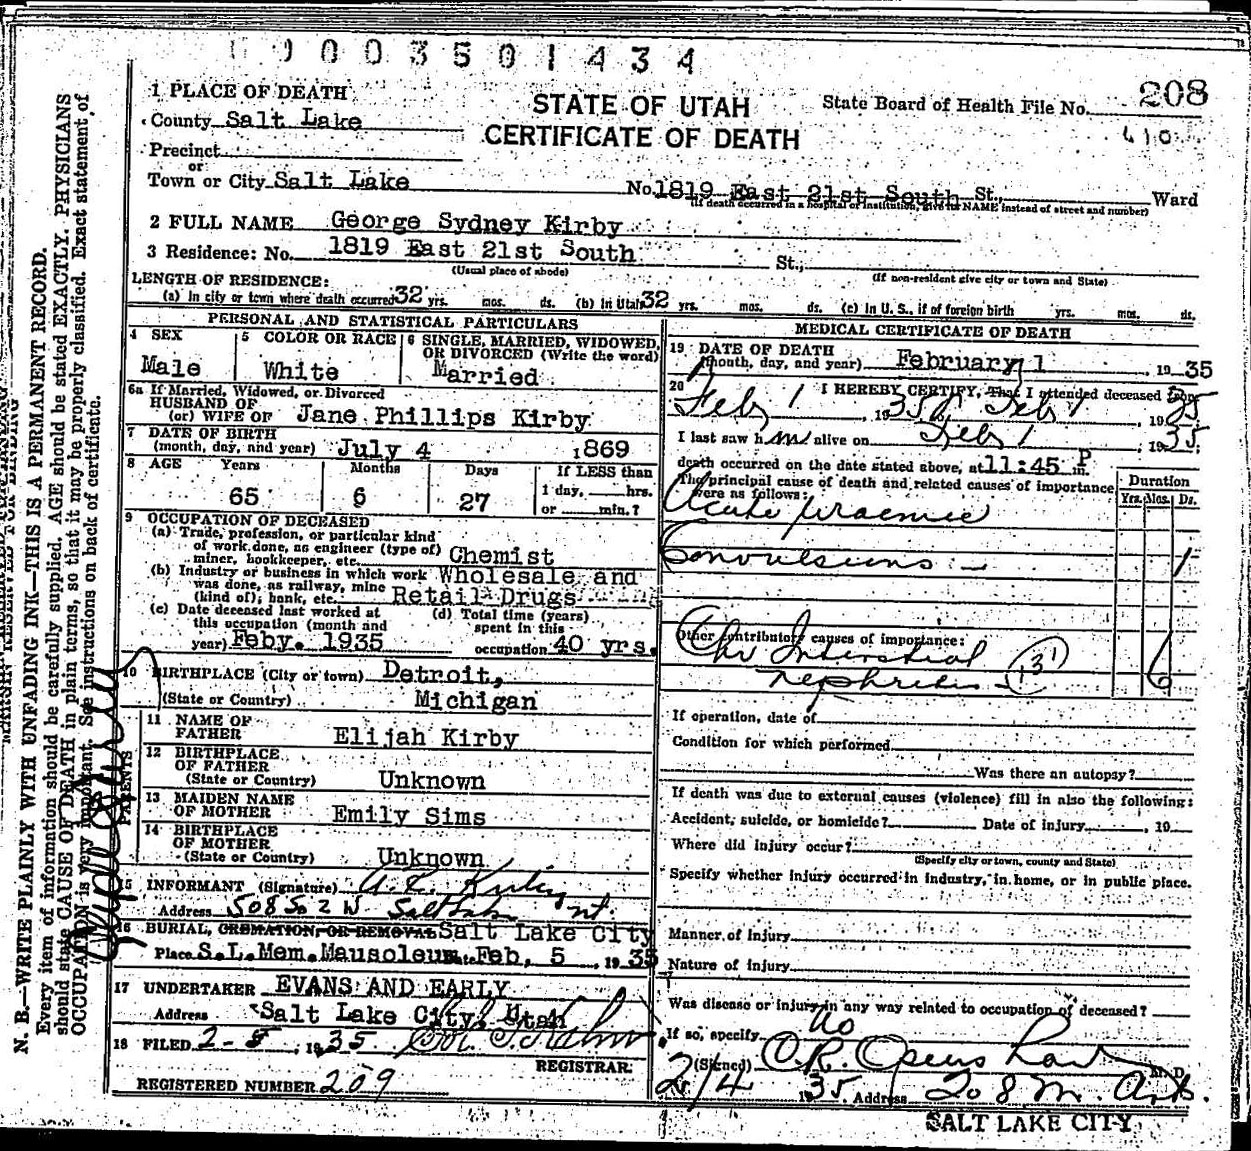 0003501434
1 PLACE OF DEATH
County Salt Lake
STATE OF UTAH
CERTIFICATE OF DEATH
State Board of Health File No. 208
410
Precinct
or
Town or City Salt Lake No. 1819 East 21st South St., Ward
(If death occurred in a hospital or institution, give its NAME instead of street and number)
2 FULL NAME George Sydney Kirby
3 Residence: No. 1819 East 21st South St.,
(Usual place of abode) (If non-resident give city or town and State)
LENGTH OF RESIDENCE:
(a) In city or town where death occurred 32 yrs. mos. ds. (b) In Utah 32 yrs. mos. ds. (c) In U. S., if of foreign birth yrs. mos. ds.
PERSONAL AND STATISTICAL PARTICULARS
4 SEX
Male
5 COLOR OR RACE
White
6 SINGLE, MARRIED, WIDOWED, OR DIVORCED (Write the word)
Married
6a If Married, Widowed, or Divorced
HUSBAND OF
(or) WIFE OF Jane Phillips Kirby
7 DATE OF BIRTH
(month, day, and year) July 4 1869
8 AGE Years Months Days If LESS than
65 6 27 1 day, hrs.
or min.?
9 OCCUPATION OF DECEASED
(a) Trade, profession, or particular kind
of work done, as engineer (type of)
miner, bookkeeper, etc. Chemist
(b) Industry or business in which work Wholesale and
was done, as railway, mine
(kind of), bank, etc. Retail Drugs
(c) Date deceased last worked at
this occupation (month and
year) Feby. 1935
(d) Total time (years)
spent in this
occupation 40 yrs.
10 BIRTHPLACE (City or town) Detroit,
(State or Country) Michigan
PARENTS
11 NAME OF
FATHER Elijah Kirby
12 BIRTHPLACE
OF FATHER
(State or Country) Unknown
13 MAIDEN NAME
OF MOTHER Emily Sims
14 BIRTHPLACE
OF MOTHER
(State or Country) Unknown
15 INFORMANT (Signature) Kirby
Address 508 So 2 W Salt Lake
16 BURIAL, CREMATION, OR REMOVAL Salt Lake City
Place S.L.Mem.Mausoleum Date Feb, 5, 1935
17 UNDERTAKER EVANS AND EARLY
Address Salt Lake City, Utah
18 FILED 2-5, 1935
REGISTRAR
REGISTERED NUMBER 209
MEDICAL CERTIFICATE OF DEATH
19 DATE OF DEATH
(month, day, and year) February 1 1935
20 I HEREBY CERTIFY, That I attended deceased from
Feby 1, 1935 to Feby 1, 1935
I last saw him alive on Feby 1, 1935
death occurred on the date stated above, at 11:45 P m.
The principal cause of death and related causes of importance
were as follows:
Duration
Yrs. Mos. Ds.
Acute Uraemic
Convulsions - 1
Other contributory causes of importance:
Chr Interstitial
nephritis 131 6
If operation, date of
Condition for which performed
Was there an autopsy?
If death was due to external causes (violence) fill in also the following:
Accident, suicide, or homicide? Date of injury, 19
Where did injury occur?
(Specify city or town, county and State)
Specify whether injury occurred in industry, in home, or in public place.
Manner of Injury
Nature of Injury
Was disease or injury in any way related to occupation of deceased?
If so, specify No
(Signed) O.R. M. D.
2/4 1935. Address 208 M. Arts.
SALT LAKE CITY
N. B.—WRITE PLAINLY WITH UNFADING INK—THIS IS A PERMANENT RECORD.
Every item of information should be carefully supplied. AGE should be stated EXACTLY. PHYSICIANS
should state CAUSE OF DEATH in plain terms, so that it may be properly classified. Exact statement of
OCCUPATION is very important. See instructions on back of certificate.